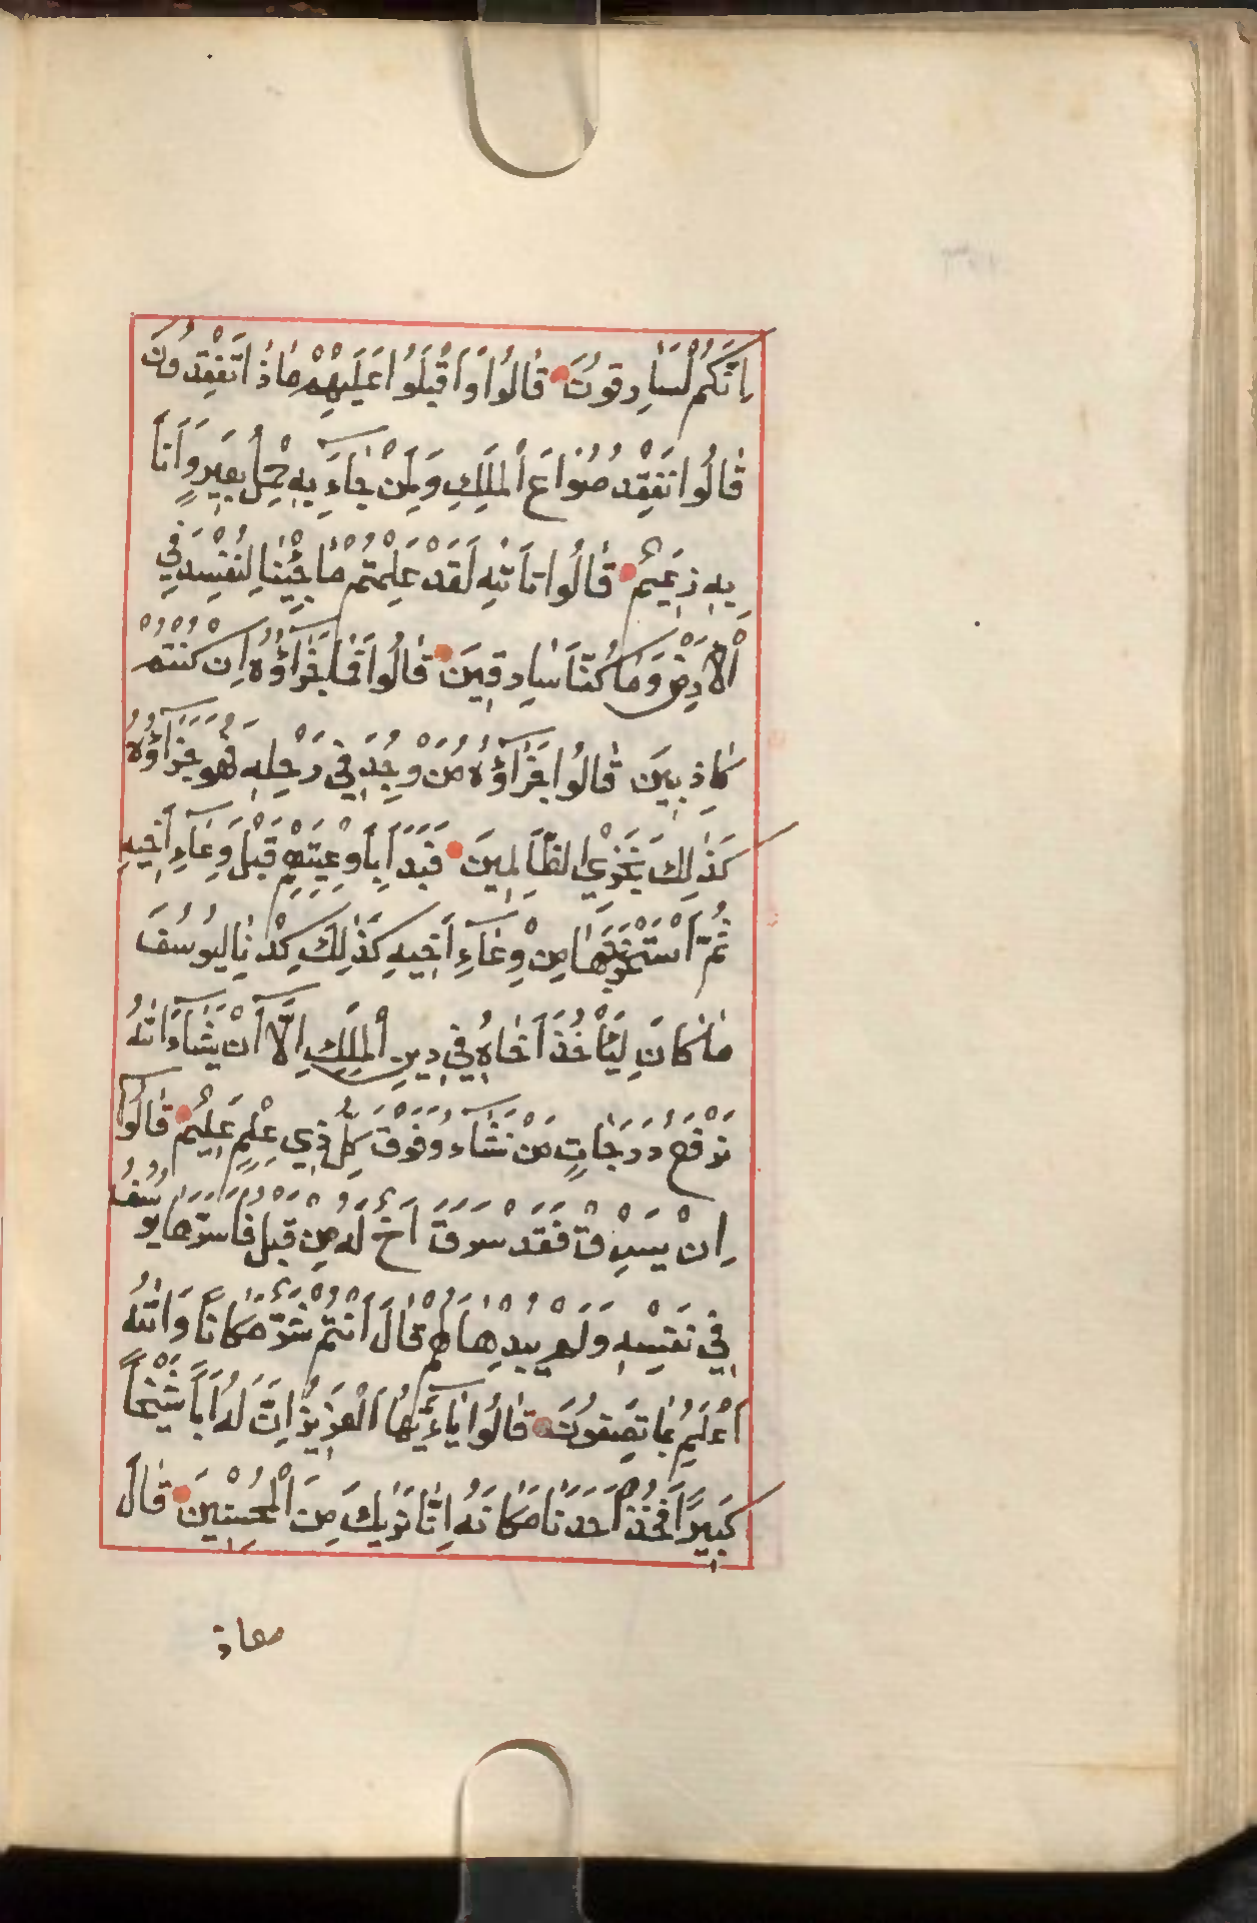 اِنَّكُمْ لَسَارِقُونَ قَالُوا وَاَقْبَلُوا عَلَيْهِمْ مَاذَا تَفْقِدُونَ
قَالُوا نَفْقِدُ صُوَاعَ اَلْمَلِكِ وَلِمَنْ جَآءَ بِهِ حِمْلُ بَعِيرٍ وَاَنَا
بِهِ زَعِيمٌ قَالُوا تَاَللّٰهِ لَقَدْ عَلِمْتُمْ مَا جِئْنَا لِنُفْسِدَ فِي
اَلْاَرْضِ وَمَا كُنَّا سَارِقِينَ قَالُوا فَمَا جَزَآؤُهُ اِنْ كُنْتُمْ
كَاذِبِينَ قَالُوا جَزَآؤُهُ مَنْ وُجِدَ فِي رَحْلِهِ فَهُوَ جَزَآؤُهُ
كَذٰلِكَ نَجْزِي الظَّالِمِينَ فَبَدَاَ بِاَوْعِيَتِهِمْ قَبْلَ وِعَآءِ اَخِيهِ
ثُمَّ اَسْتَخْرَجَهَا مِنْ وِعَآءِ اَخِيهِ كَذٰلِكَ كِدْنَا لِيُوسُفَ
مَا كَانَ لِيَأْخُذَ اَخَاهُ فِي دِينِ اَلْمَلِكِ اِلَّآ اَنْ يَشَآءَ اَللّٰهُ
نَرْفَعُ دَرَجَاتٍ مَنْ نَشَآءُ وَفَوْقَ كُلِّ ذِي عِلْمٍ عَلِيمٌ قَالُوٓا
اِنْ يَسْرِقْ فَقَدْ سَرَقَ اَخٌ لَهُ مِنْ قَبْلُ فَاَسَرَّهَا يُوسُفُ
فِي نَفْسِهِ وَلَمْ يُبْدِهَا لَهُمْ قَالَ اَنْتُمْ شَرٌّ مَكَانًا وَاَللّٰهُ
اَعْلَمُ بِمَا تَصِفُونَ قَالُوا يَآءَيُّهَا اَلْعَزِيزُ اِنَّ لَهُ اَبًا شَيْخًا
كَبِيرًا فَخُذْ اَحَدَنَا مَكَانَهُ اِنَّا نَرٰيكَ مِنَ اَلْمُحْسِنِينَ قَالَ
معاذ